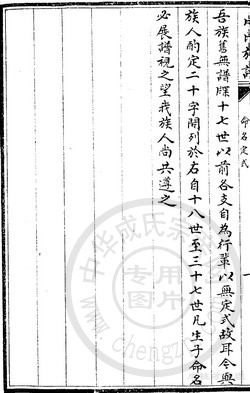 命名定式
吾族舊無譜牒十七世以前各支自為行輩以無定式故耳今與
族人酌定二十字開列於右自十八世至三十七世凡生子命名
必展譜視之望我族人尚共遵之
中华成氏宗
专用
图片
www.chengz